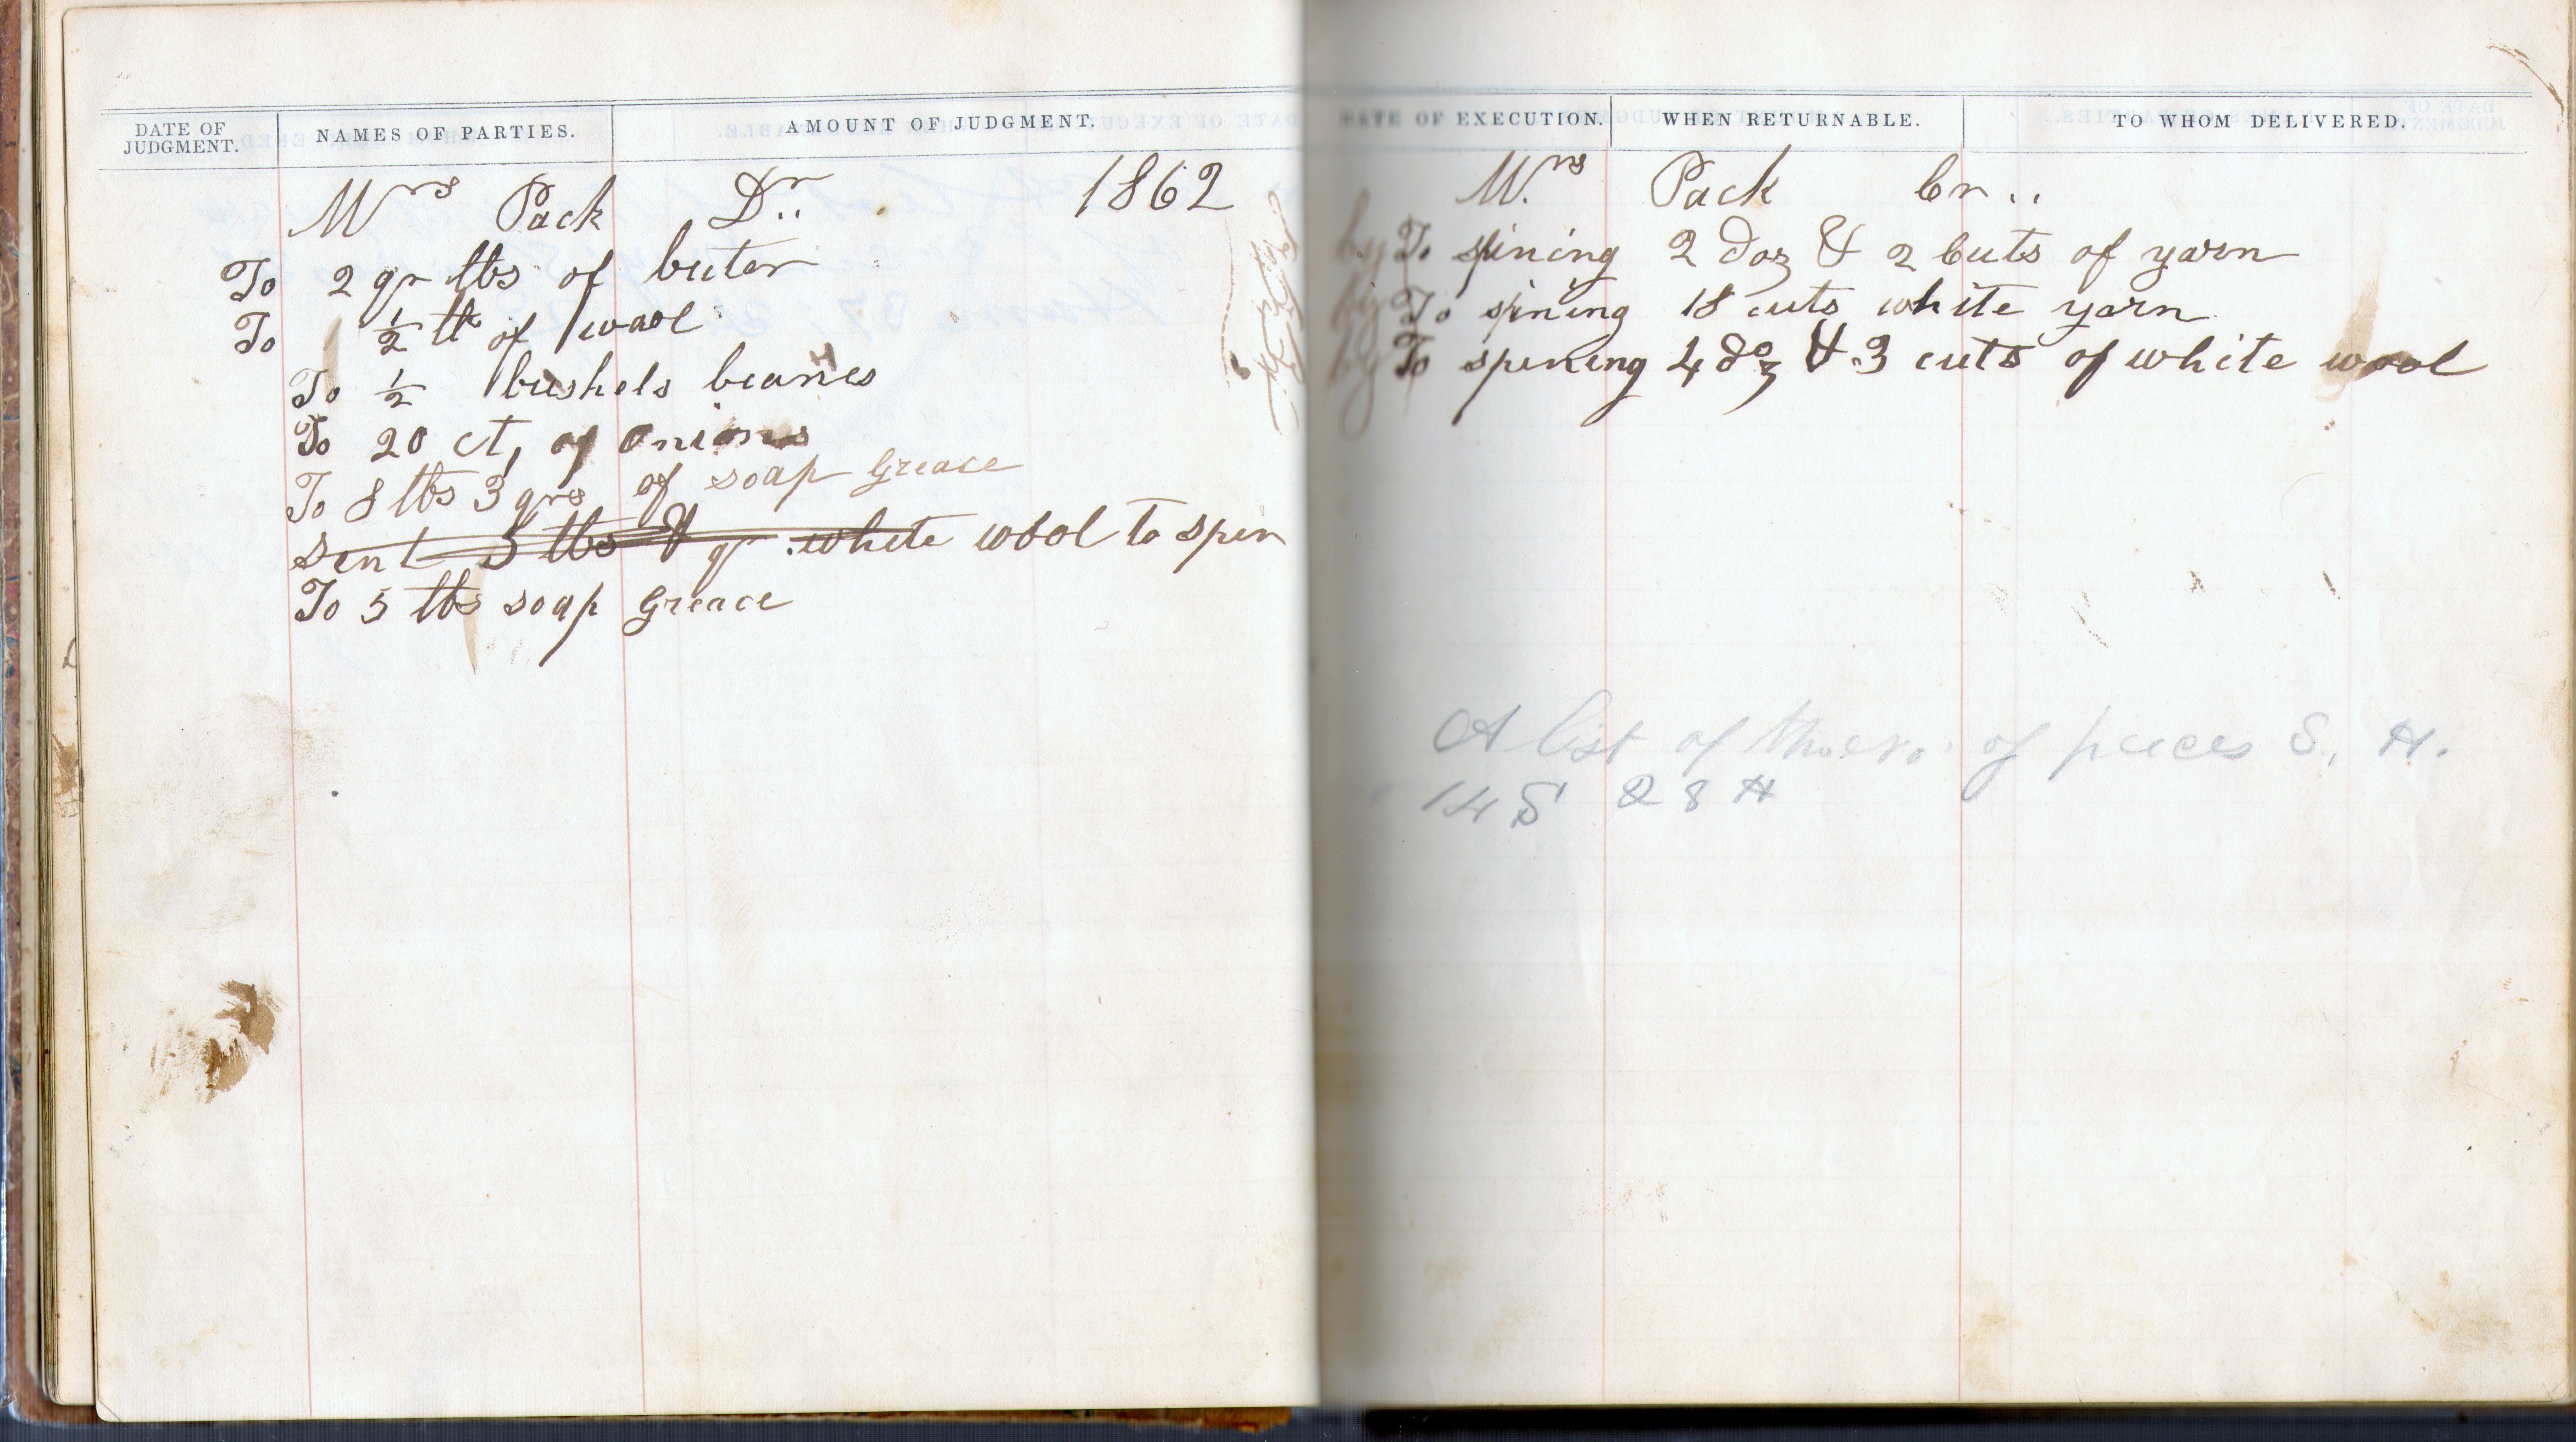 DATE OF JUDGMENT. NAMES OF PARTIES. AMOUNT OF JUDGMENT.
Mrs Pack Dr.. 1862
To 2 qr lbs of buter
To ½ lb of wool
To ½ bushels beanes
To 20 ct, of onions
To 8 lbs 3 qrs of soap Greace
sent 5 lbs & qr white wool to spin
To 5 lbs soap Greace
DATE OF EXECUTION. WHEN RETURNABLE. TO WHOM DELIVERED.
Mrs Pack Cr..
by To spining 2 doz & 2 Cuts of yarn
by To spining 18 cuts white yarn
by To spining 4 doz & 3 cuts of white wool
A list of of pieces S, H.
14 S 28 H